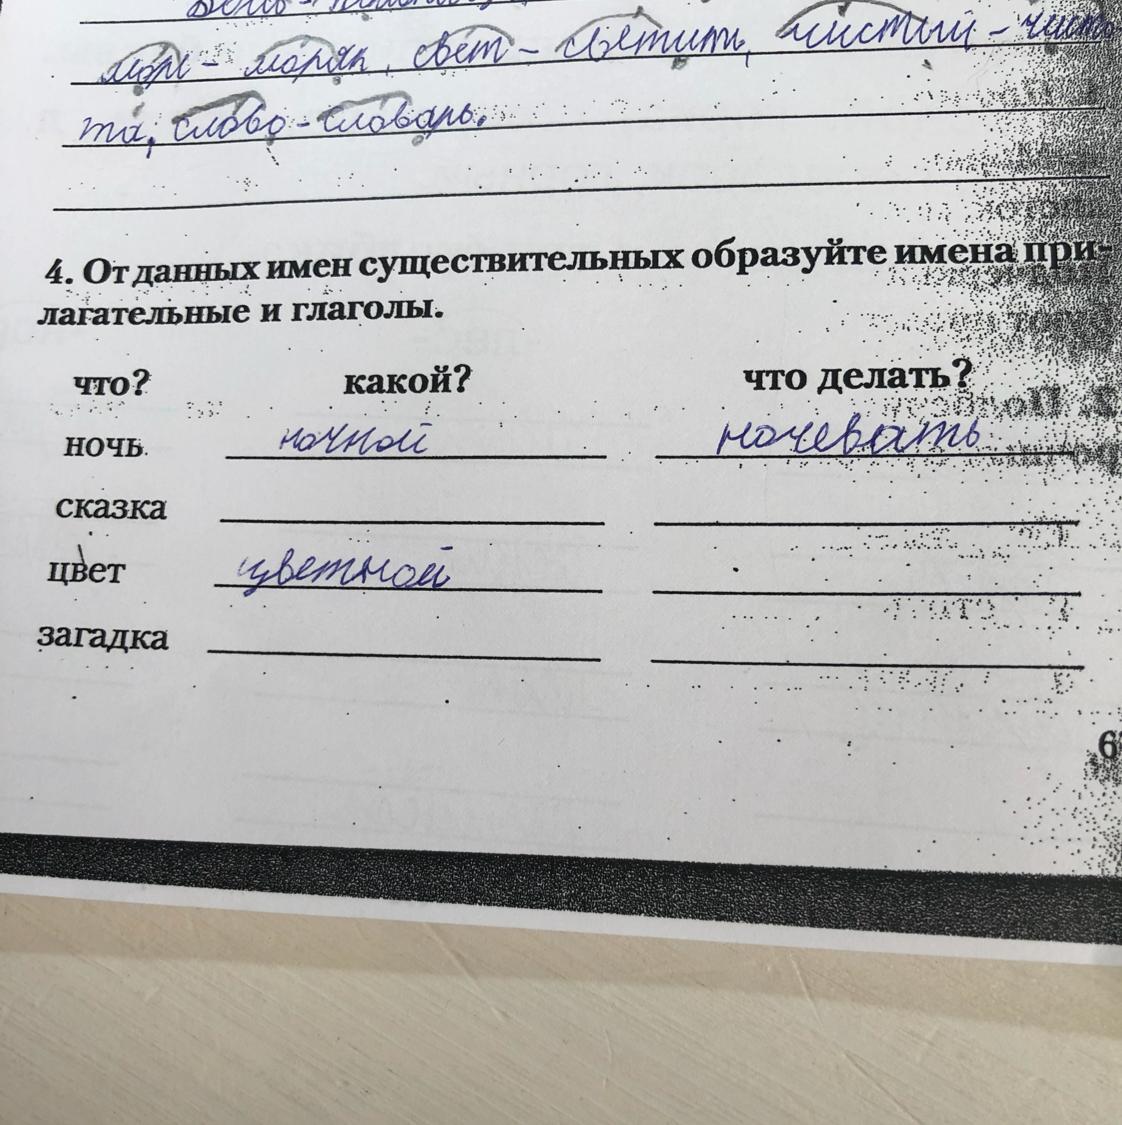 море - моряк, свет - светити, чистый - чисто
та, слово - словарь.
4. От данных имен существительных образуйте имена при-
лагательные и глаголы.
что? какой? что делать?
ночь ночной ночевать
сказка
цвет цветной
загадка
6